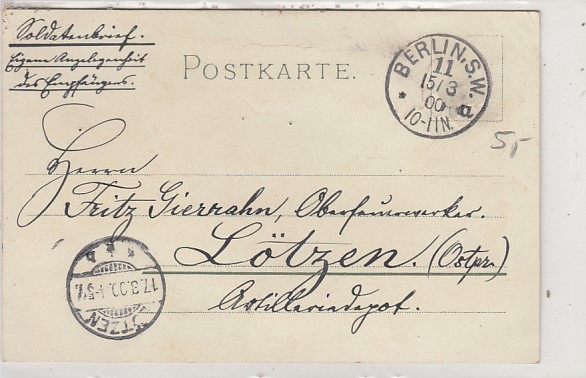 Soldatenbrief.
Eigene Angelegenheit
des Empfängers.
POSTKARTE.
BERLIN.S.W.
11
15/3
00
10-11N.
* a
5,-
Herrn
Fritz Gierrahn, Oberfeuerwerker.
Lötzen. (Ostpr.)
Artilleriedepot.
* * b
17.3.00.
LÖTZEN